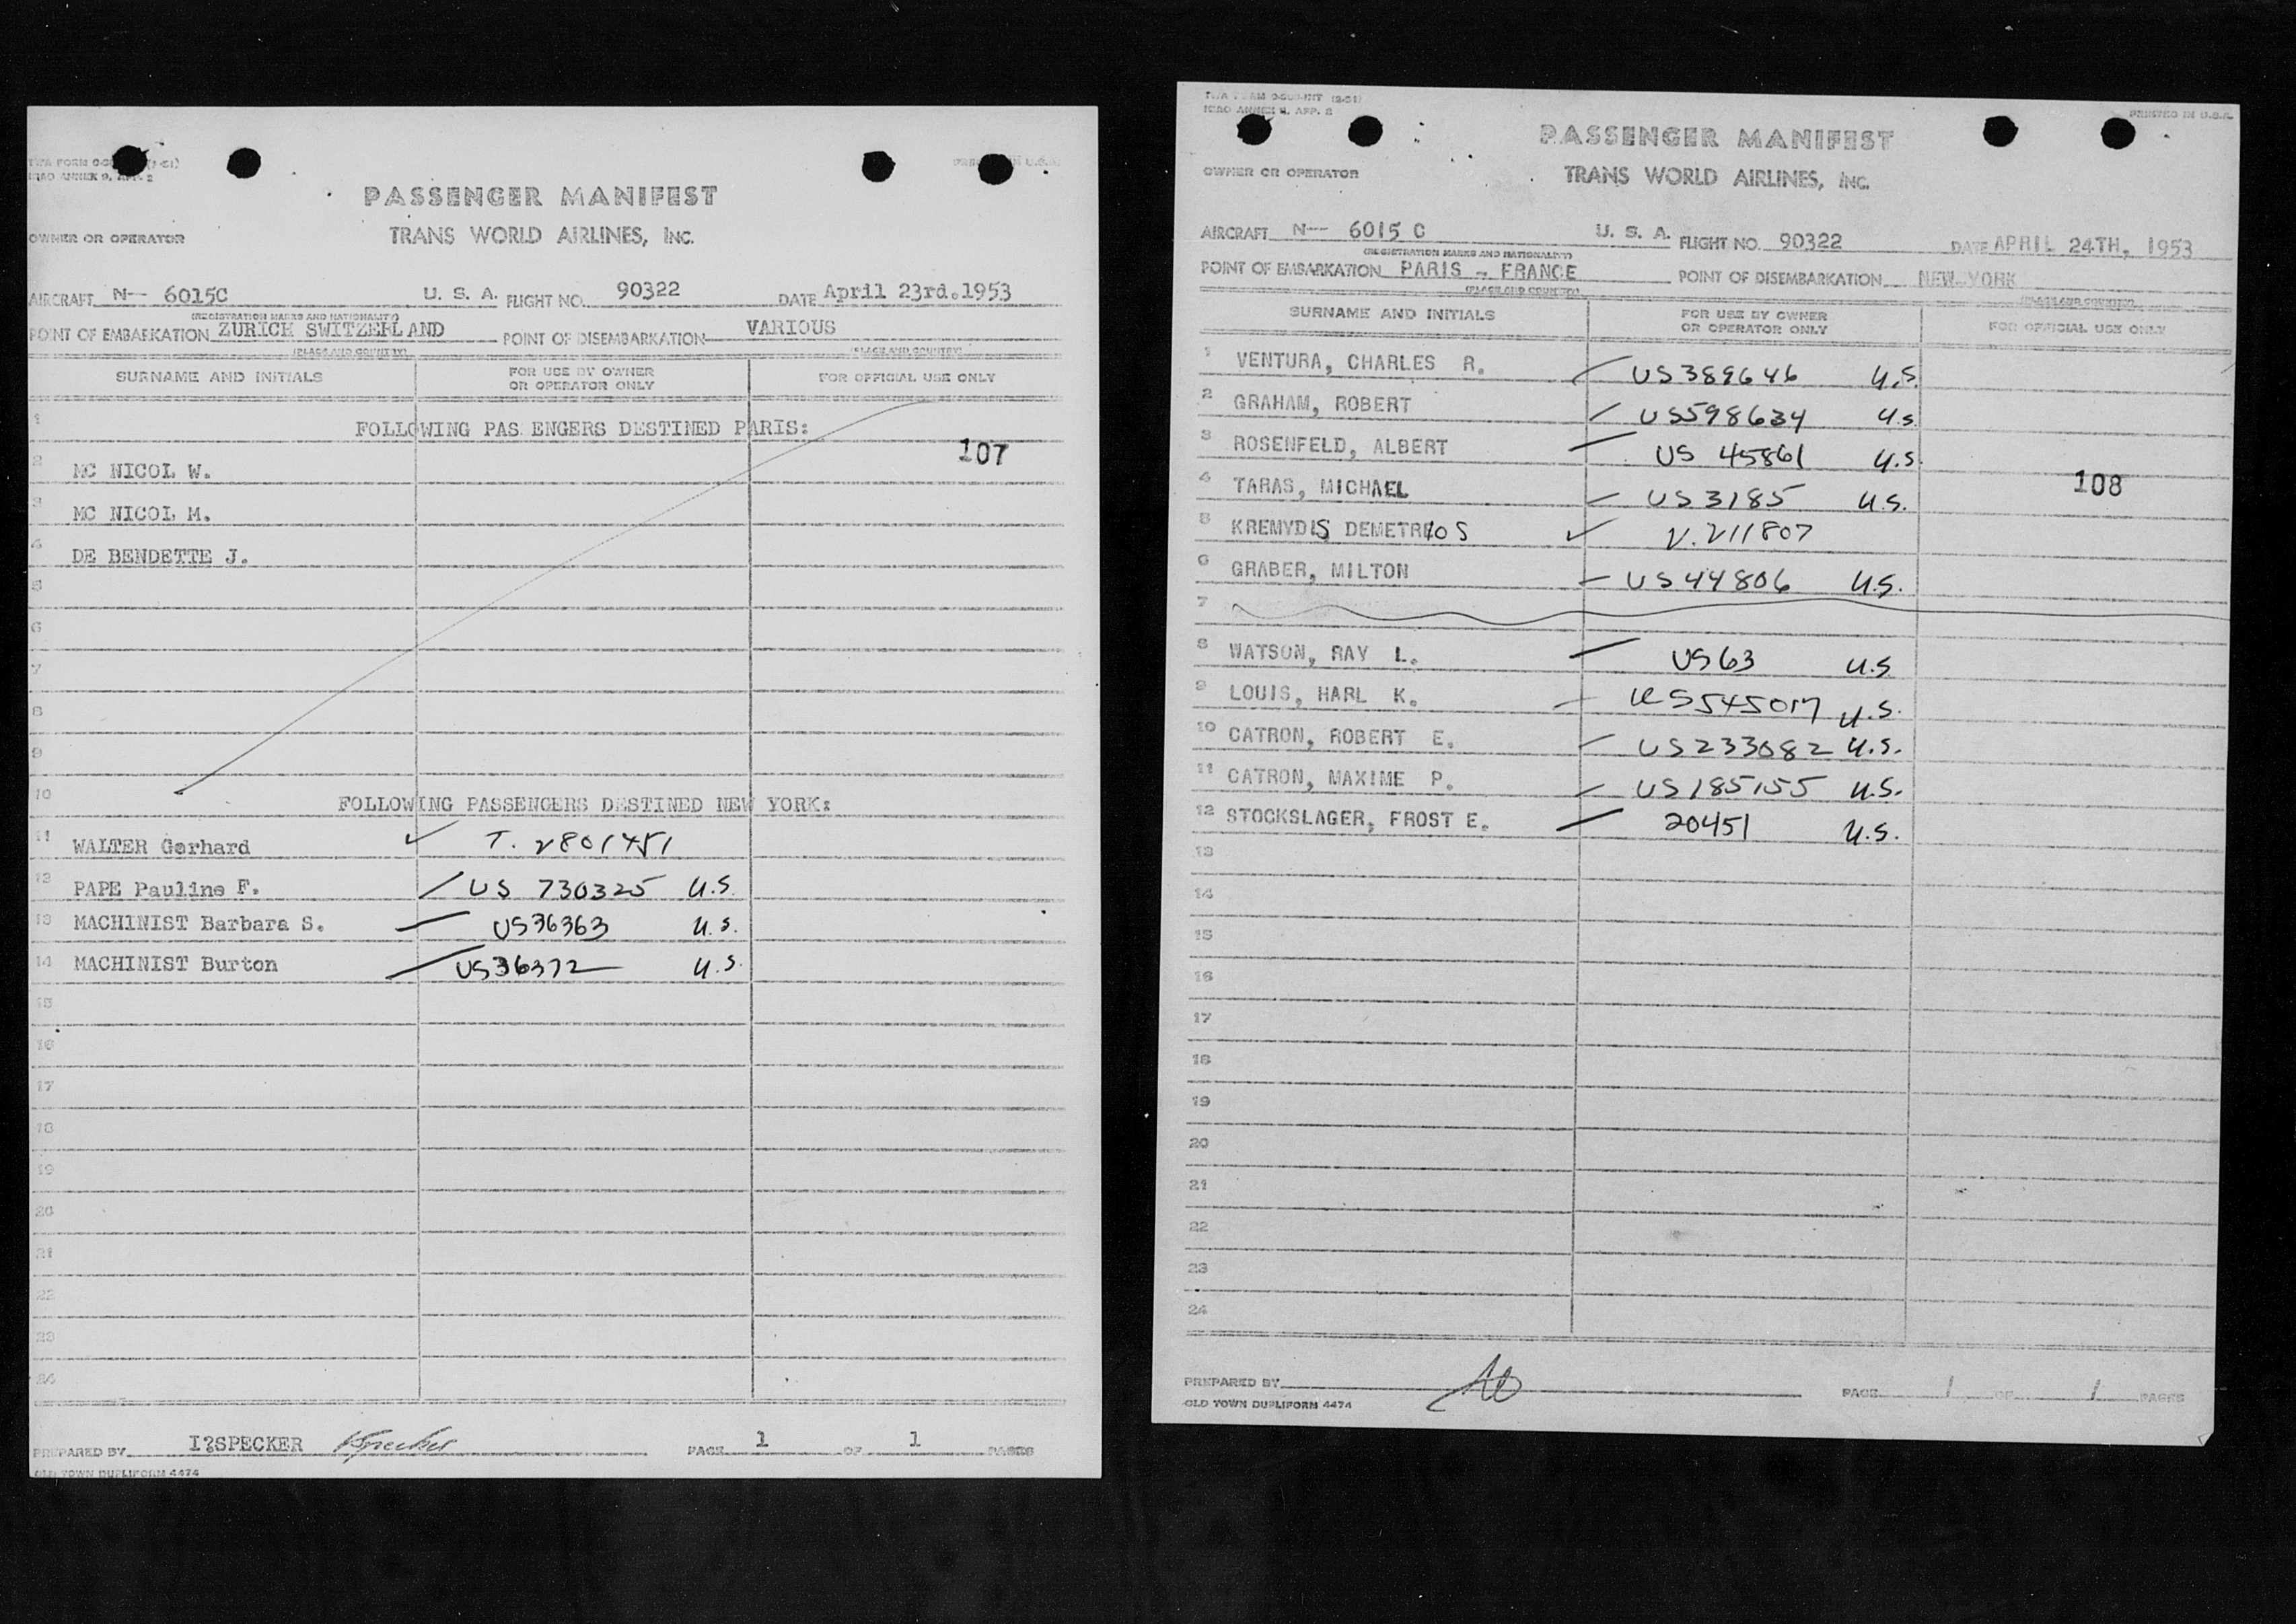 PASSENGER MANIFEST
OWNER OR OPERATOR TRANS WORLD AIRLINES, INC.
AIRCRAFT N-- 6015C U. S. A. FLIGHT NO. 90322 DATE April 23rd.1953
(REGISTRATION MARKS AND NATIONALITY)
POINT OF EMBARKATION ZURICH SWITZERLAND POINT OF DISEMBARKATION VARIOUS
(PLACE AND COUNTRY) (PLACE AND COUNTRY)
SURNAME AND INITIALS FOR USE BY OWNER OR OPERATOR ONLY FOR OFFICIAL USE ONLY
1 FOLLOWING PAS ENGERS DESTINED PARIS:
107
2 MC NICOL W.
3 MC NICOL M.
4 DE BENDETTE J.
5
6
7
8
9
10 FOLLOWING PASSENGERS DESTINED NEW YORK:
11 WALTER Gerhard ✓ T. 2801451
12 PAPE Pauline F. US 730325 U.S.
13 MACHINIST Barbara S. US36363 U.S.
14 MACHINIST Burton US36372 U.S.
15
16
17
18
19
20
21
22
23
24
PREPARED BY I?SPECKER Specker PAGE 1 OF 1 PAGES
OLD TOWN DUPLIFORM 4474
ICAO ANNEX 9, APP. 2 PRINTED IN U.S.A.
PASSENGER MANIFEST
OWNER OR OPERATOR TRANS WORLD AIRLINES, INC.
AIRCRAFT N-- 6015 C U. S. A. FLIGHT NO. 90322 DATE APRIL 24TH, 1953
(REGISTRATION MARKS AND NATIONALITY)
POINT OF EMBARKATION PARIS - FRANCE POINT OF DISEMBARKATION NEW YORK
(PLACE AND COUNTRY) (PLACE AND COUNTRY)
SURNAME AND INITIALS FOR USE BY OWNER OR OPERATOR ONLY FOR OFFICIAL USE ONLY
1 VENTURA, CHARLES R. US389646 U.S.
2 GRAHAM, ROBERT US598634 U.S
3 ROSENFELD, ALBERT US 45861 U.S.
4 TARAS, MICHAEL US3185 U.S. 108
5 KREMYDIS DEMETRIOS ✓ V.211807
6 GRABER, MILTON US44806 U.S.
7
8 WATSON, RAY L. US63 U.S
9 LOUIS, HARL K. US545017 U.S.
10 CATRON, ROBERT E. US233082 U.S.
11 CATRON, MAXIME P. US185155 U.S.
12 STOCKSLAGER, FROST E. 20451 U.S.
13
14
15
16
17
18
19
20
21
22
23
24
PREPARED BY PAGE 1 OF 1 PAGES
OLD TOWN DUPLIFORM 4474